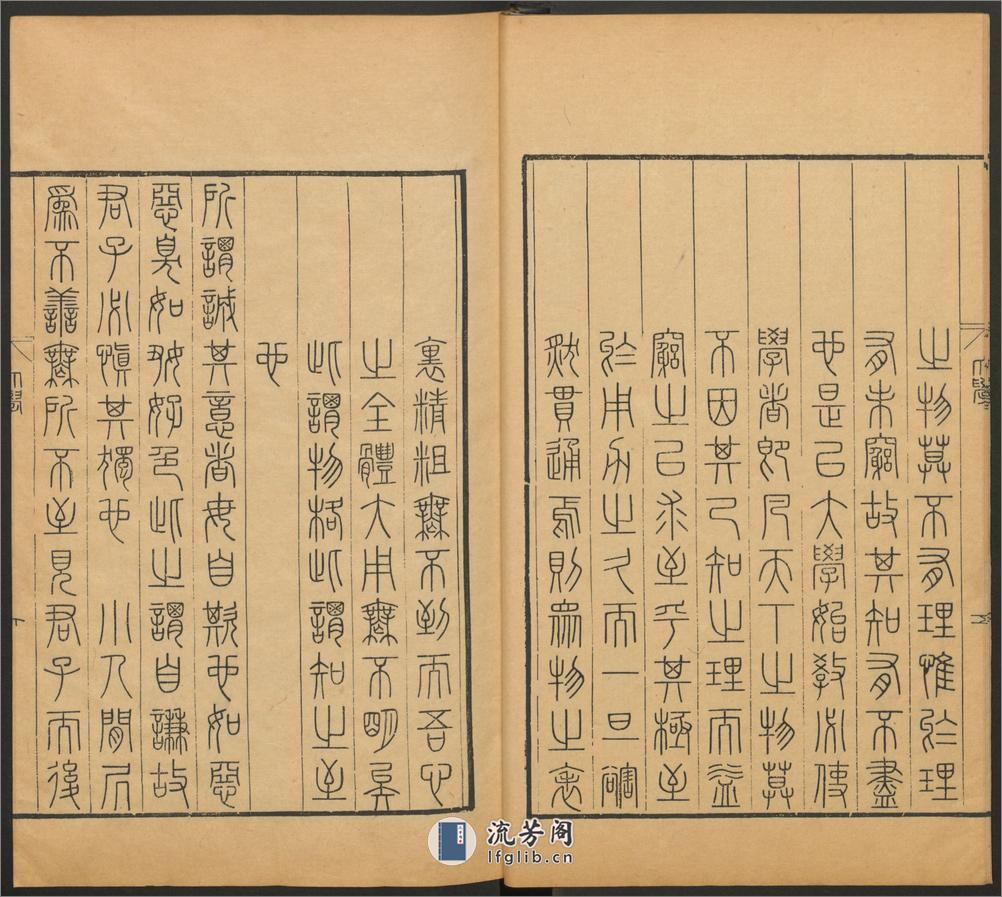 大學
之物莫不有理惟於理
有未窮故其知有不盡
也是以大學始敎必使
學者卽凡天下之物莫
不因其已知之理而益
窮之以求至乎其極至
於用力之久而一旦豁
然貫通焉則衆物之表
裏精粗無不到而吾心
之全體大用無不明矣
此謂物格此謂知之至
也
所謂誠其意者毋自欺也如惡
惡臭如好好色此之謂自謙故
君子必愼其獨也 小人閒居
爲不善無所不至見君子而後
大學
流芳阁
lfglib.cn